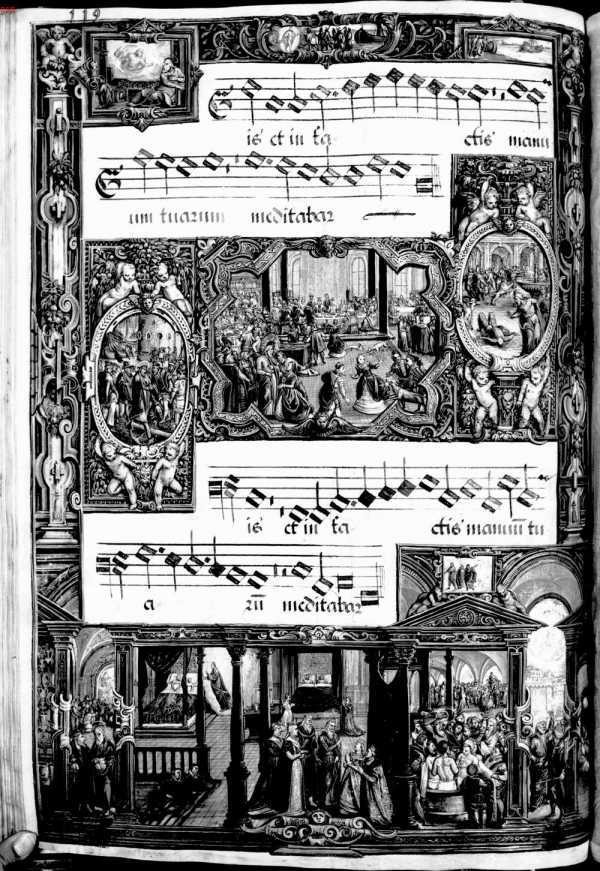 119
is et in fa ctis manu
um tuarum meditabar
is et in fa ctis manuū tu
a rū meditabar